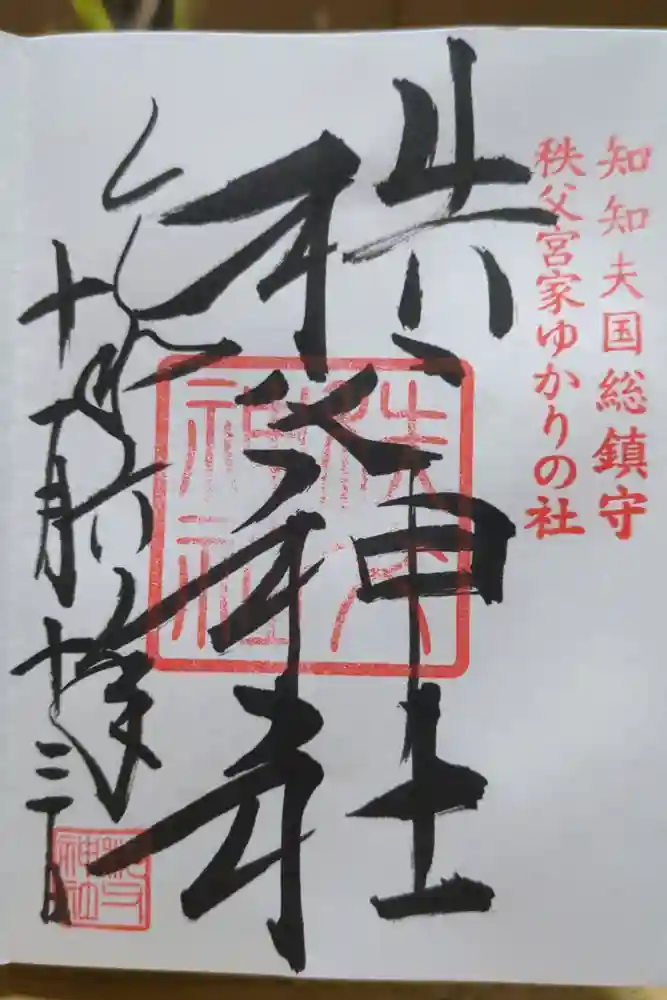 知知夫国総鎮守
秩父宮家ゆかりの社
秩父神社
秩父
神社
令和六年
十一月十三日
秩父
神社